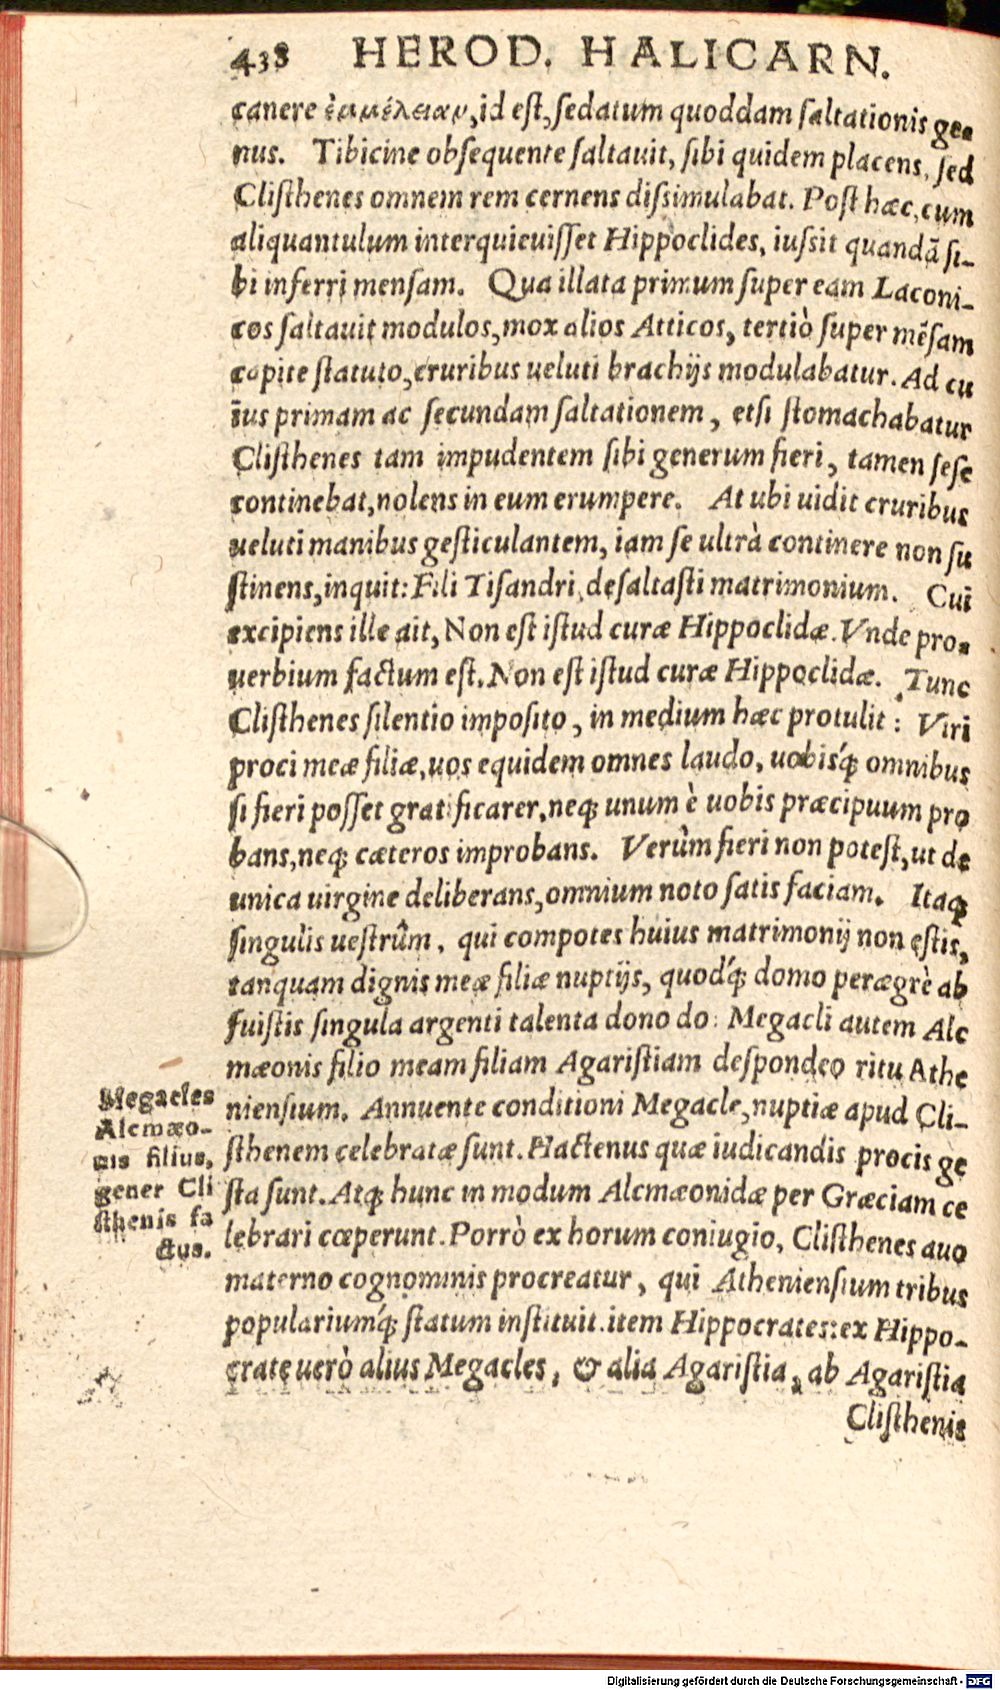 438 HEROD. HALICARN.
canere ἐμμέλειαν, id eſt, ſedatum quoddam ſaltationis ge-
nus. Tibicine obſequente ſaltauit, ſibi quidem placens, ſed
Cliſthenes omnem rem cernens diſsimulabat. Poſt hæc, cum
aliquantulum interquieuiſſet Hippoclides, iuſsit quandã ſi-
bi inferri menſam. Qua illata primum ſuper eam Laconi-
cos ſaltauit modulos, mox alios Atticos, tertiò ſuper mẽſam
capite ſtatuto, cruribus ueluti brachijs modulabatur. Ad cu
ius primam ac ſecundam ſaltationem, etſi ſtomachabatur
Cliſthenes tam impudentem ſibi generum fieri, tamen ſeſe
continebat, nolens in eum erumpere. At ubi uidit cruribus
ueluti manibus geſticulantem, iam ſe ultrà continere non ſu
ſtinens, inquit: Fili Tiſandri, deſaltaſti matrimonium. Cui
excipiens ille ait, Non eſt iſtud curæ Hippoclidæ. Vnde pro-
uerbium factum eſt, Non eſt iſtud curæ Hippoclidæ. Tunc
Cliſthenes ſilentio impoſito, in medium hæc protulit: Viri
proci meæ filiæ, uos equidem omnes laudo, uobisq́; omnibus
ſi fieri poſſet gratificarer, neq; unum è uobis præcipuum pro
bans, neq; cæteros improbans. Verûm fieri non poteſt, ut de
unica uirgine deliberans, omnium uoto ſatis faciam. Itaq;
ſingulis ueſtrûm, qui compotes huius matrimonij non eſtis,
tanquam dignis meæ filiæ nuptijs, quodq́; domo peræegrè ab
fuiſtis ſingula argenti talenta dono do: Megacli autem Alc
mæonis filio meam filiam Agariſtiam deſpondeo ritu Athe
nienſium. Annuente conditioni Megacle, nuptiæ apud Cli-
ſthenem celebratæ ſunt. Hactenus quæ iudicandis procis ge
ſta ſunt. Atq; hunc in modum Alcmæonidæ per Græciam ce
lebrari cœperunt. Porrò ex horum coniugio, Cliſthenes auo
materno cognominis procreatur, qui Athenienſium tribus
populariumq́; ſtatum inſtituit. item Hippocrates: ex Hippo-
crate uerò alius Megacles, & alia Agariſtia, ab Agariſtia
Cliſthenis
Megacles
Alcmæo-
nis filius,
gener Cli
ſthenis fa
ctus.
Digitalisierung gefördert durch die Deutsche Forschungsgemeinschaft - DFG